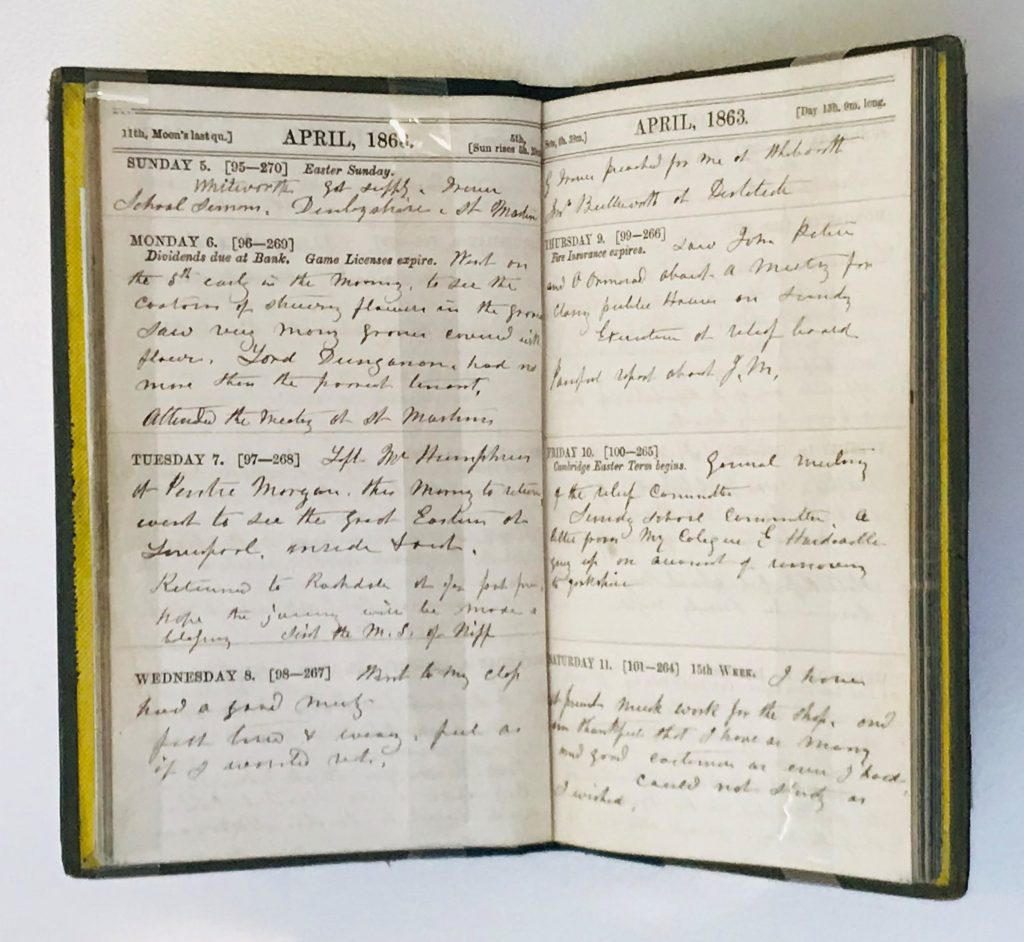 11th, Moon's last qu.] APRIL, 186 [Sun rises 5h.
SUNDAY 5. [95—270] Easter Sunday.
Whitworth Got supply.
School Sermons. Denbyshire St Martin
MONDAY 6. [96—269]
Dividends due at Bank. Game Licenses expire. Went on
the 5th early in the Morning, to see the
Custom of strewing flowers in the grave
Saw very many graves covered with
flowers. Lord Dunganon had no
more than the poorest tenant.
Attended the Meeting at St Martins
TUESDAY 7. [97—268] Left Mr Humphries
at Pentre Morgan. this Morng to return
went to see the Great Eastern at
Liverpool. inside & out.
Returned to Rochdale at
hope the will be made a
blessing the M.S. of
WEDNESDAY 8. [98—267] Went to my class
had a good meetg.
felt tired & weary. feel as
if I wanted rest.
APRIL, 1863. [Day 13h. 9m. long.
preached for me at Whitworth
Butterworth at
THURSDAY 9. [99—266] Saw John
Fire Insurance expires.
and O Ormerod about a Meeting for
Closing public Houses on Sunday
Executive of relief board
Painful report about J. M.
FRIDAY 10. [100—265]
Cambridge Easter Term begins. General meeting
of the relief Committee
Sunday School Committee. A
letter from My Colegue E Hardcastle
giving up on account of removing
to yorkshire
SATURDAY 11. [101—264] 15th WEEK. I have
at present much work for the shop. and
am thankful that I have as many
and good customers as ever I had.
Could not study as
I wished.